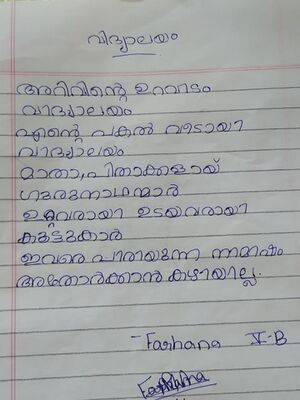 വിദ്യാലയം
അറിവിന്റെ ഉറവിടം
വിദ്യാലയം
എന്റെ പകൽ വീടായി
വിദ്യാലയം
മാതാ,പിതാക്കളായ്
ഗുരുനാഥന്മാർ
ഉറ്റവരായി ഉടയവരായി
കൂട്ടുകാർ
ഇവരെ പിരിയുന്ന നിമിഷം
അതോർക്കാൻ കഴിയില്ല.
- Farhana V-B
Farhana